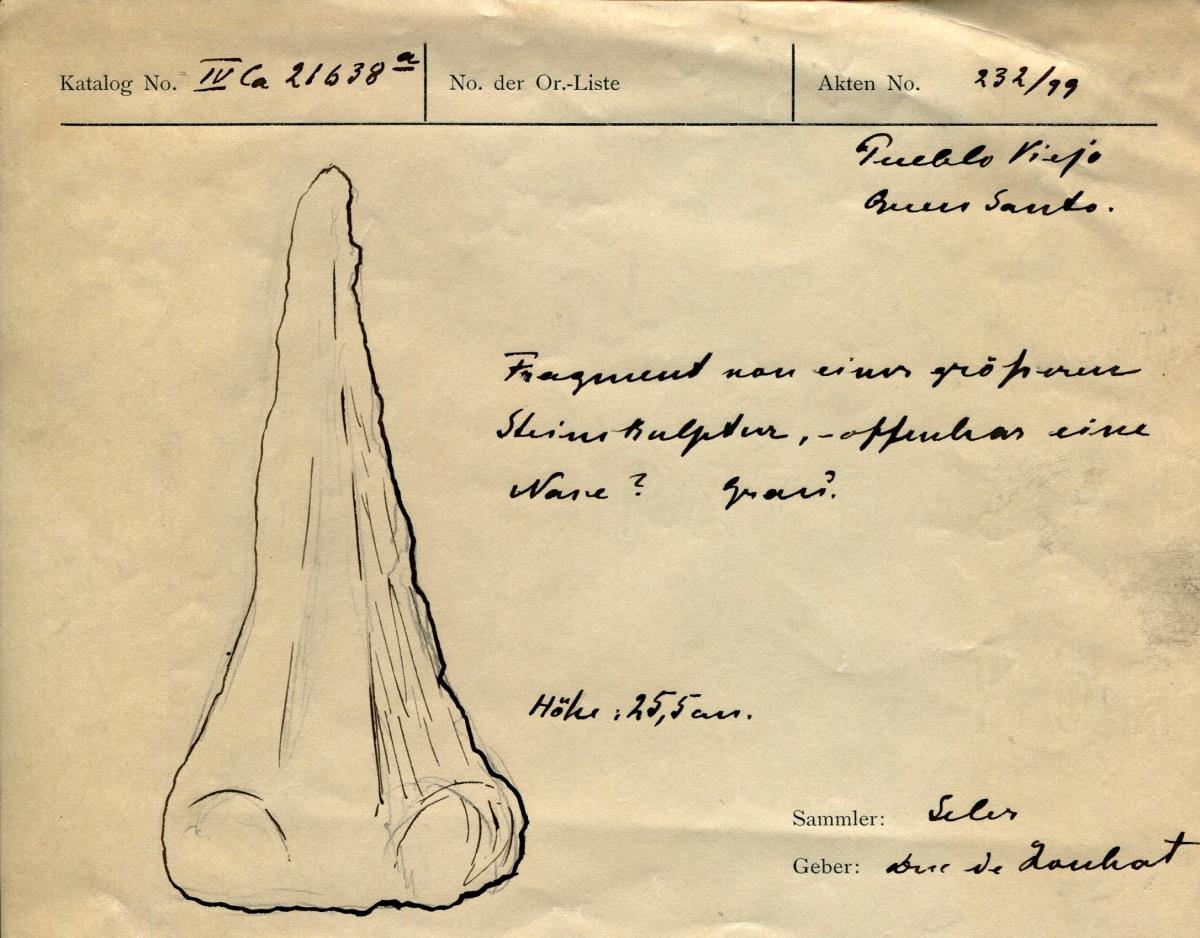 Katalog No. IV Ca 21638 a
No. der Or.-Liste
Akten No. 232/99
Pueblo Viejo
Quen Santo.
Fragment von einer größeren
Steinskulptur, - offenbar eine
Nase? Grau?.
Höhe: 25,5 cm.
Sammler: Seler
Geber: Duc de Loubat